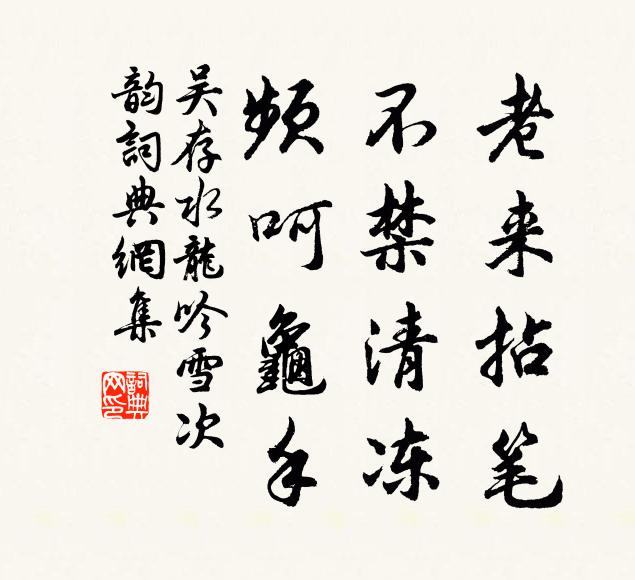 老来拈笔
不禁清冻
频呵龜手
吴存水龍吟雪次
韵詞典網集
詞典
网印